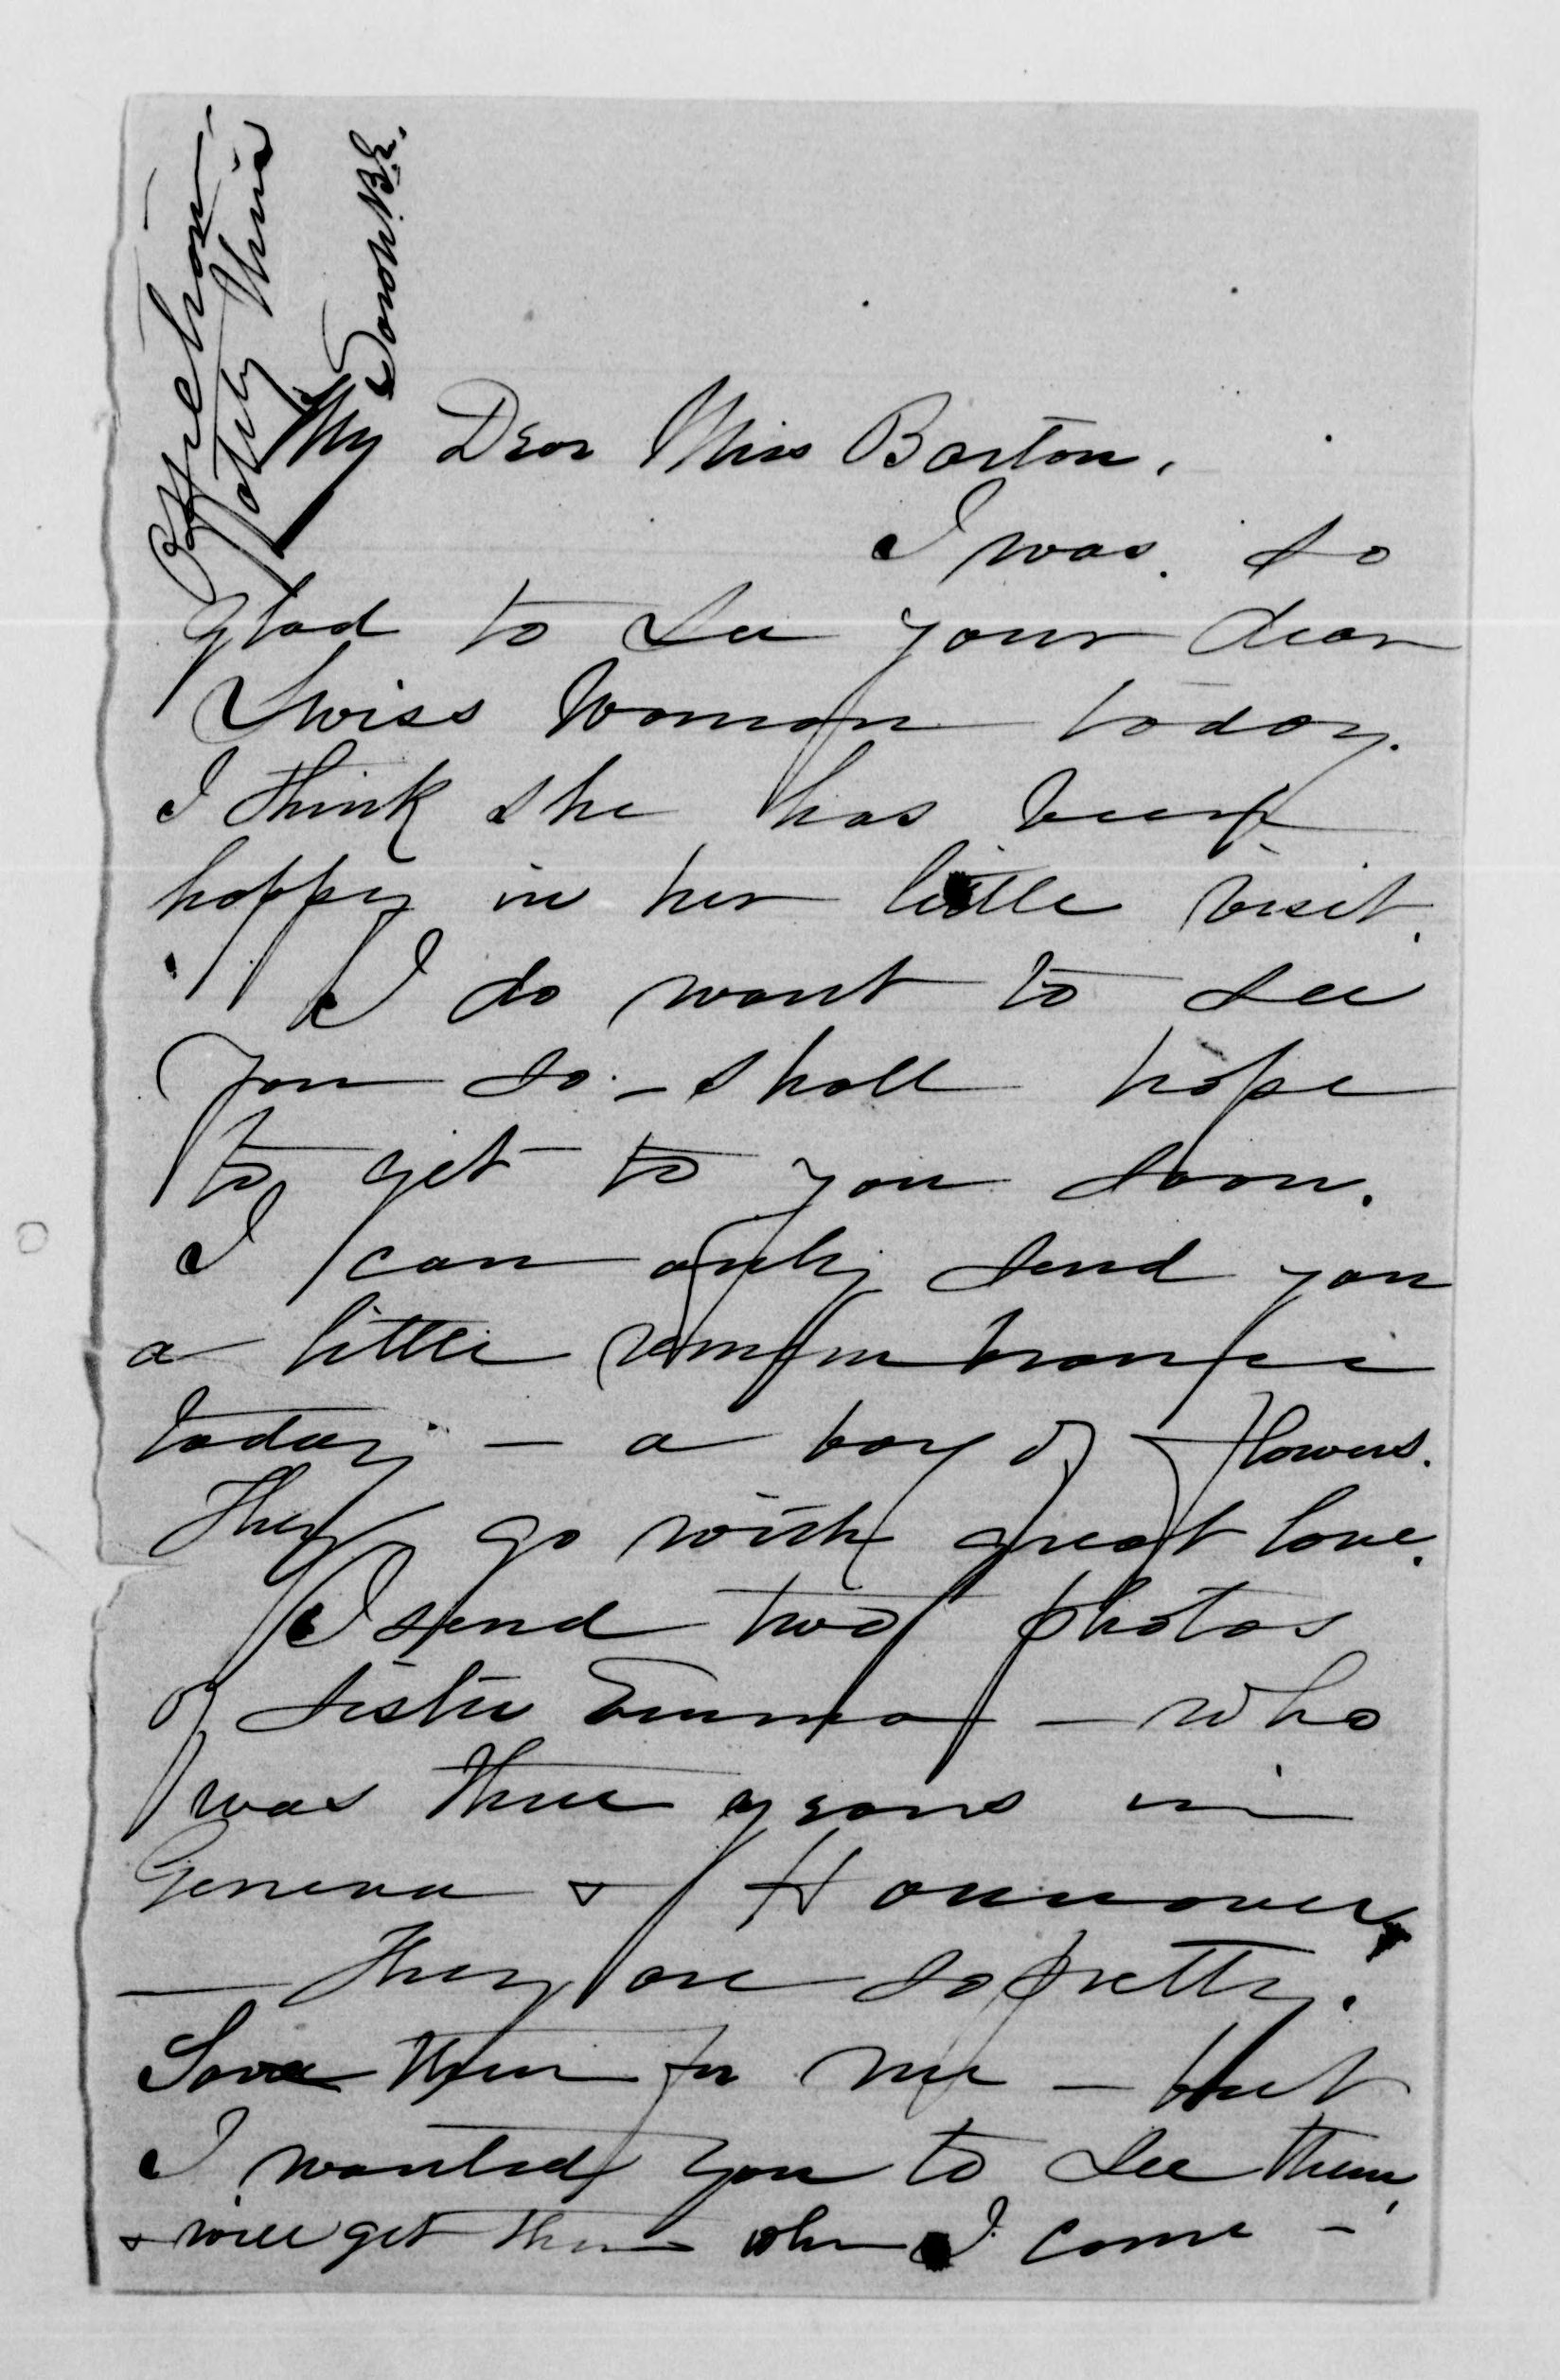 My Dear Miss Barton,
I was so
glad to see your dear
Swiss Woman today.
I think she has been
happy in her little visit.
I do want to see
you so - shall hope
to get to you soon.
I can only send you
a little remembrance
today - a box of flowers.
They go with great love.
I send two photos
of sister Emma - who
was three years in
Geneva & Hannover
- They are so pretty.
Save them for me - but
I wanted you to see them,
& will get them when I come -
Affection-
ately Thine
Sarah